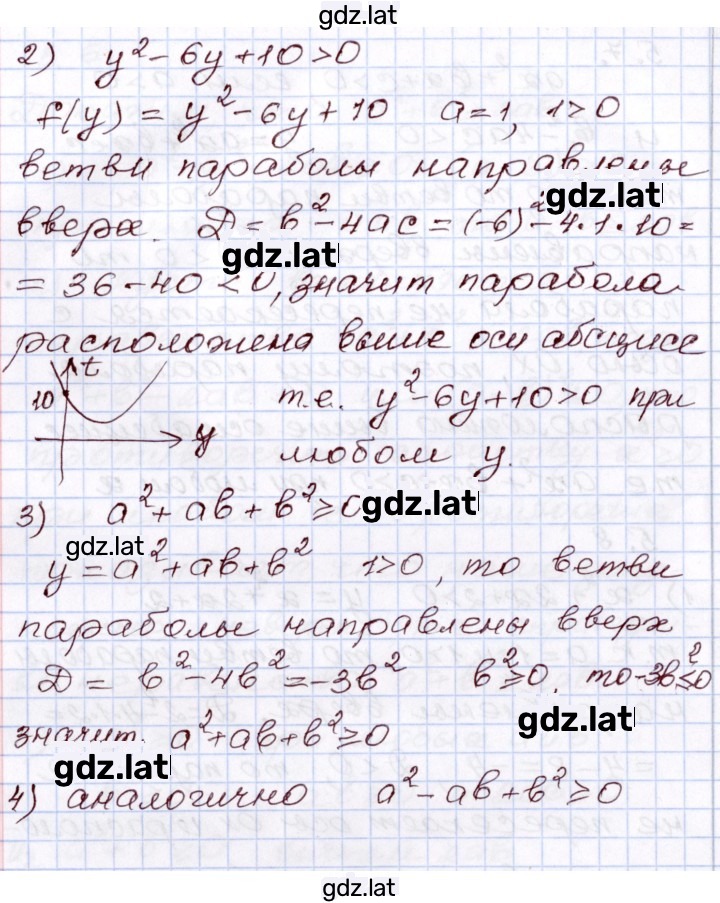 gdz.lat
2) y² - 6y + 10 > 0
f(y) = y² - 6y + 10 a = 1, 1 > 0
ветви параболы направлены
gdz.lat
вверх. D = b² - 4ac = (-6)² - 4·1·10 =
gdz.lat
= 36 - 40 < 0, значит парабола
расположена выше оси абсцисс
t
10
y
т.е. y² - 6y + 10 > 0 при
любом y.
3) a² + ab + b² ≥ 0
gdz.lat
gdz.lat
y = a² + ab + b² 1 > 0, то ветви
параболы направлены вверх
D = b² - 4b² = -3b² b² ≥ 0, то -3b² ≤ 0
gdz.lat
значит. a² + ab + b² ≥ 0
gdz.lat
4) аналогично a² - ab + b² ≥ 0
gdz.lat